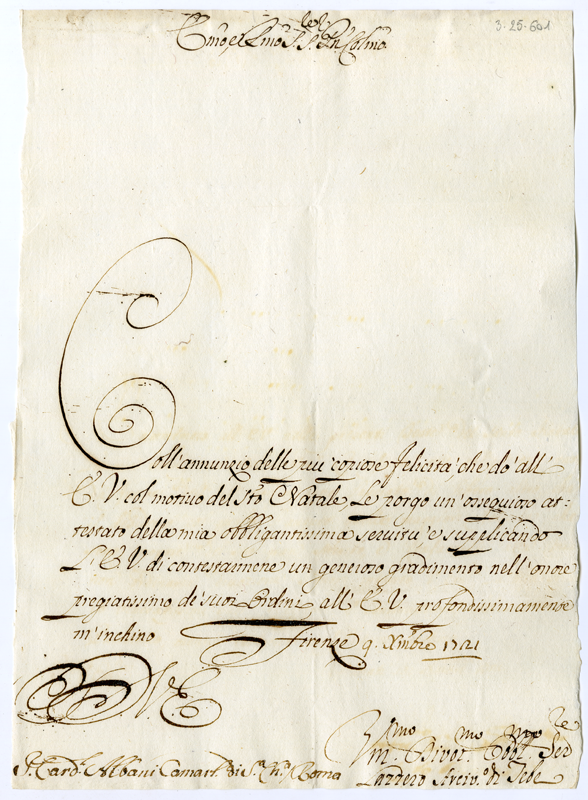 3-25-601
Emo, e Rmo S.r S.r Pn Colmo
Coll'annunzio delle più copiose felicità, che do all'
E. V. col motivo del Sto. Natale, Le porgo un'ossequioso at-
testato della mia obbligantissima servitù e supplicando
L'E V. di contestarmene un generoso gradimento nell'onore
pregiatissimo de' suoi Ordini all' E. V. profondissimamente
m'inchino Firenze 9. Xmbre 1721
V E
Umo Divot.mo Obb.mo Ser.re
S. Card. Albani Camarl. di S.a Ch.a Roma
Arciv.o di Tebe